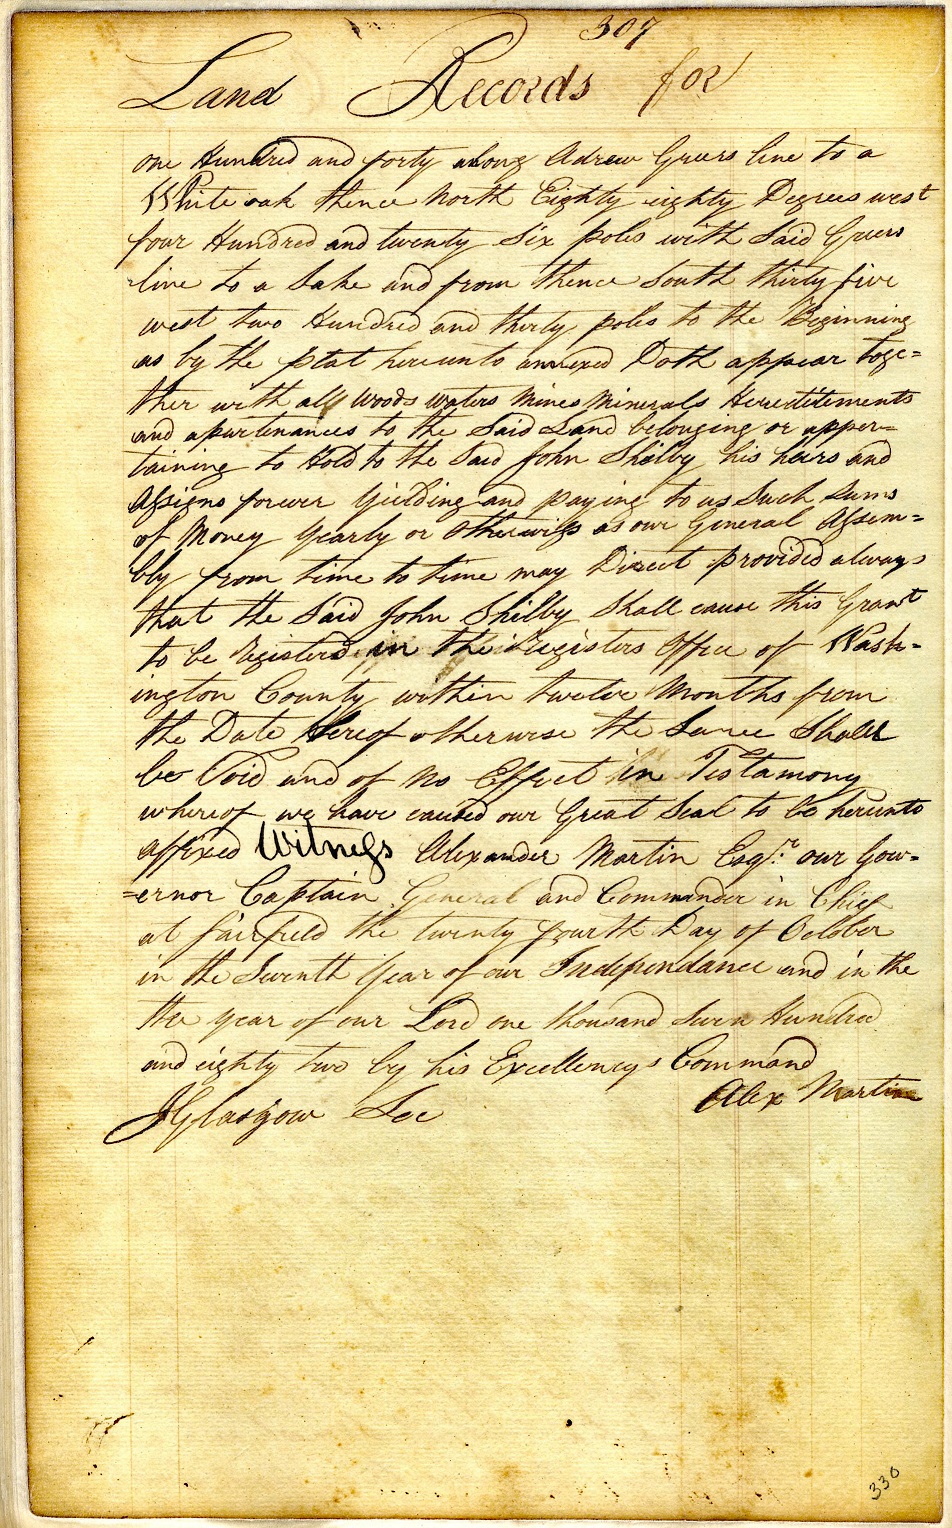 307
Land Records for
one Hundred and forty along Adrew Greers line to a
White oak thence North Eighty eighty Degrees west
four Hundred and twenty Six poles with Said Greers
line to a Sake and from thence South thirty five
west two Hundred and thirty poles to the Beginning
as by the plat hereunto annexed Doth appear toge=
ther with all woods waters Mines Minerals Heredetements
and apurtenances to the Said Land belonging or apper=
taining to Hold to the Said John Shilby his heirs and
Assigns forever Yielding and paying to us Such Sums
of Money Yearly or otherwise as our General Assem=
bly from time to time may Direct provided always
that the Said John Shilby Shall cause this Grant
to be Registerd in the Registers Office of Wash=
ington County within twelve Months from
the Date Hereof otherwise the Same Shall
be Void and of No Effect in Testamony
whereof we have caused our Great Seal to be hereunto
affixed Witness Alexander Martin Esqr. our Gov=
=ernor Captain General and Commander in Chief
at fairfield the twenty fourth Day of October
in the Seventh Year of our Independance and in the
the year of our Lord one thousand Seven Hundred
and eighty two by his Excellencys Command
JGlasgow Sec Alex Martin
330